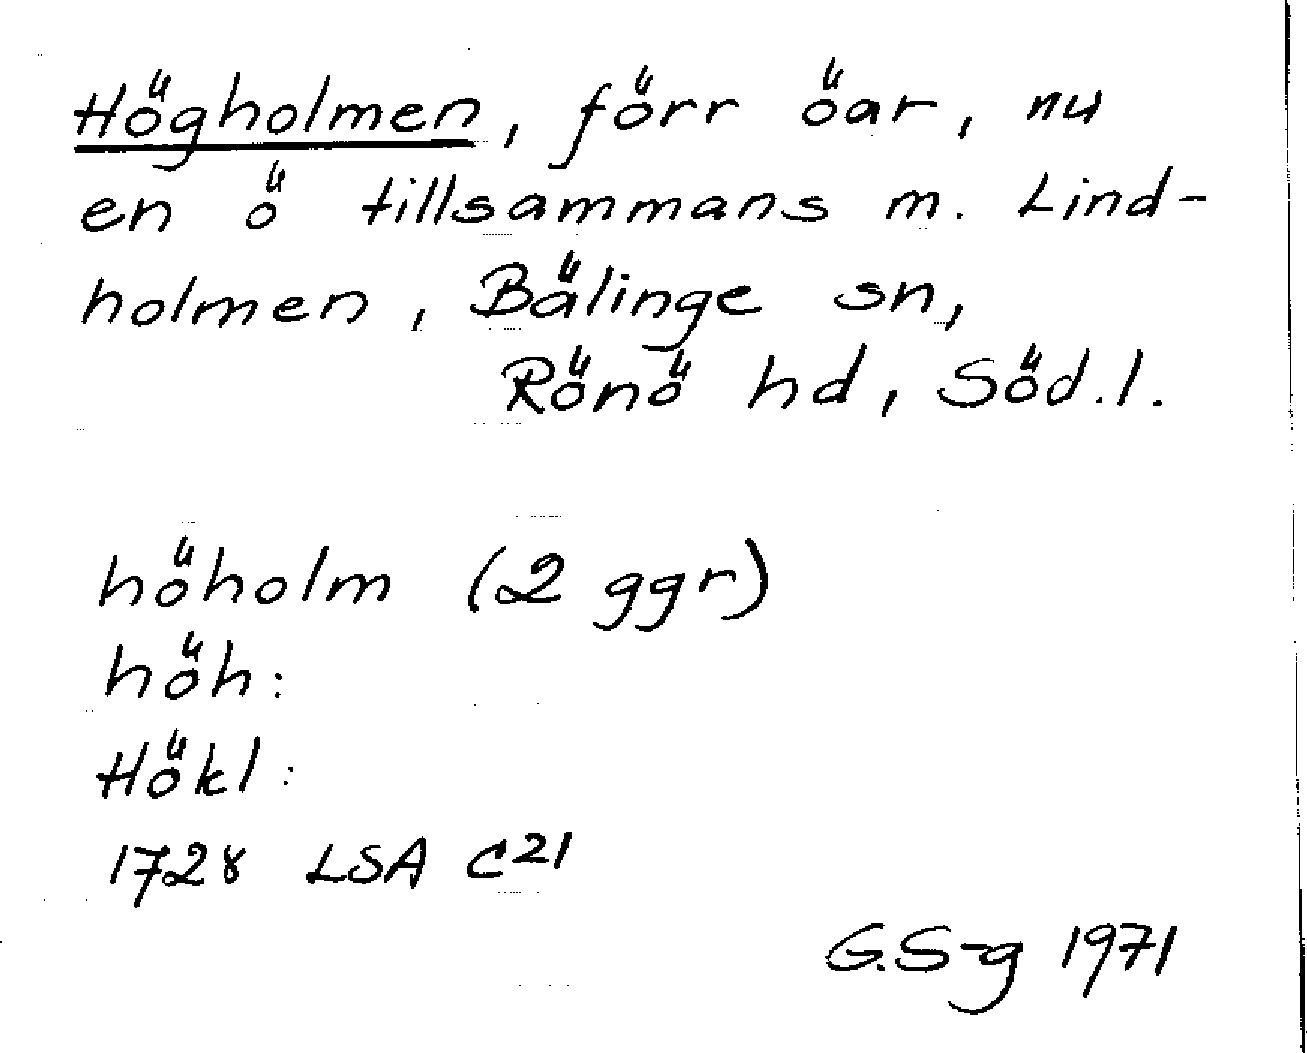 Högholmen, förr öar, nu
en ö tillsammans m. Lind-
holmen, Bälinge sn,
Rönö hd, Söd.l.
höholm (2 ggr)
höh:
Hökl:
1728 LSA C21
G.S-g 1971